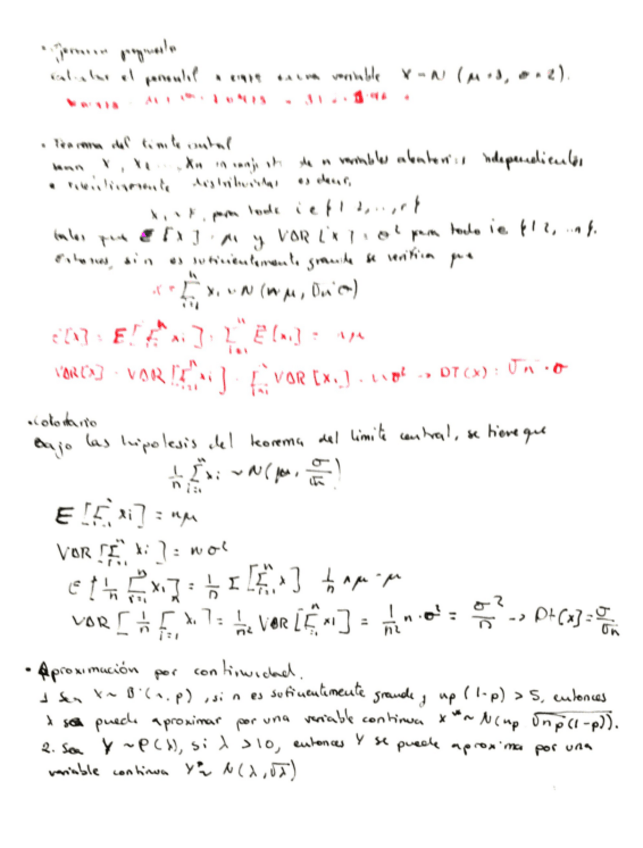 calcular el percentil en una variable X ~ N ( μ = 3, σ = 2 ).
• Teorema del límite central
X₁, X₂, ..., Xn un conjunto de n variables aleatorias independientes
distribuidas es decir,
para todo i ∈ {1, 2, ..., n}
tales que E[X] = μ y VAR[X] = σ² para todo i ∈ {1, 2, ... n}.
Entonces, si n es suficientemente grande se verifica que
X = Σ_{i=1}^n xᵢ ~ N (nμ, √n · σ)
E[X] = E[Σ_{i=1}^n xᵢ] = Σ_{i=1}^n E[xᵢ] = nμ
VAR[X] = VAR[Σ_{i=1}^n xᵢ] = Σ_{i=1}^n VAR[xᵢ] = nσ² → DT(X) = √n · σ
• Colorario
Bajo las hipotesis del teorema del limite central, se tiene que
1/n Σ_{i=1}^n xᵢ ~ N(μ, σ/√n)
E [Σ_{i=1}^n xᵢ] = nμ
VAR [Σ_{i=1}^n xᵢ] = nσ²
E [1/n Σ_{i=1}^n xᵢ] = 1/n E [Σ_{i=1}^n x] 1/n nμ = μ
VAR [1/n Σ_{i=1}^n xᵢ] = 1/n² VAR [Σ_{i=1}^n xᵢ] = 1/n² n·σ² = σ²/n → Dt[x] = σ/√n
• Aproximación por continuidad.
1 Sea X ~ B(n, p), si n es suficientemente grande y np (1-p) > 5, entonces
X se puede aproximar por una variable continua X* ~ N(np, √np(1-p)).
2. Sea Y ~ P(λ), si λ > 10, entonces Y se puede aproxima por una
variable continua Y* ~ N(λ, √λ)